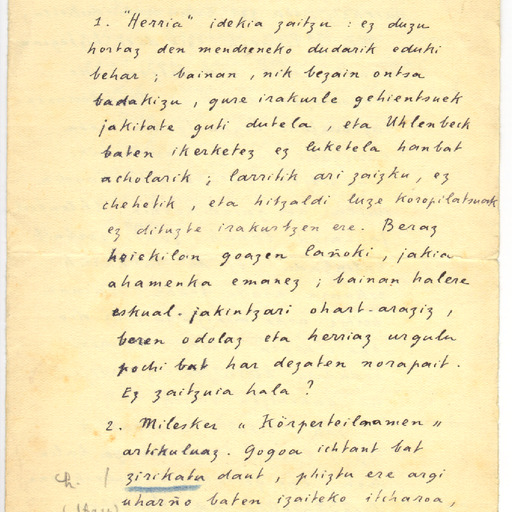 1. "Herria" idekia zaitzu : ez duzu
hortaz den mendreneko dudarik eduki
behar ; bainan , nik bezain ontsa
badakizu , gure irakurle gehientsuek
jakitate guti dutela , eta Uhlenbeck
baten ikerketez ez luketela hanbat
acholarik ; larritik ari zaizku , ez
chehetik , eta hitzaldi luze koropilatsuak
ez dituzte irakurtzen ere. Beraz
heiekilon goazen lañoki , jakia
ahamenka emanez ; bainan halere
eskual-jakintzari ohart-araziz ,
beren odolaz eta herriaz urgulu
pochi bat har dezaten norapait.
Ez zaitzuia hala ?
2. Milesker „ Körperteilnamen „
artikuluaz. Gogoa ichtant bat
ch. / zirikatu daut , phiztu ere argi
uharño baten izaiteko itcharoa ,